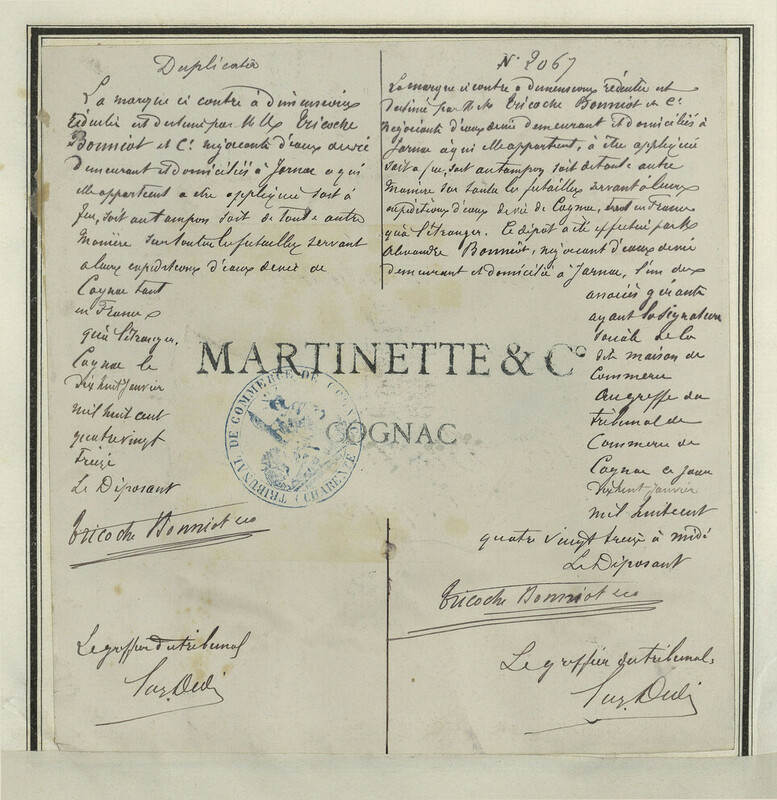 Duplicata
La marque ci contre à dimensions
réduites est destinée par MM Tricoche
Bonniot et Cie négociants d'eaux de vie
demeurant et domiciliés à Jarnac a qui
elle appartient a être appliquée soit à
feu, soit au tampon soit de toute autre
manière sur toutes les futailles servant
a leurs expéditions d'eaux de vie de
Cognac tant
en France
qu'à l'étranger.
Cognac le
dix huit Janvier
mil huit cent
quatre vingt
treize
Le Déposant
Tricoche Bonniot & Co
Le greffier du tribunal
N° 2067
La marque ci contre a dimensions réduites est
destinée par MM. Tricoche Bonniot & Cie
négociants d'eaux de vie demeurant et domiciliés à
Jarnac à qui elle appartient, à être appliquée
soit a feu, soit au tampon soit de toute autre
manière sur toutes les futailles servant à leurs
expéditions d'eaux de vie de Cognac, tant en France
qu'à l'étranger. Ce dépôt a été effectué par M.
Alexandre Bonniot, négociant d'eaux de vie
demeurant et domicilié à Jarnac, l'un des
associés gérants
ayant la signature
sociale de la
dite maison de
Commerce
au greffe du
tribunal de
Commerce de
Cognac ce jour
dix huit Janvier
mil huit cent
quatre vingt treize à midi
Le Déposant
Tricoche Bonniot & Co
Le greffier du tribunal.
MARTINETTE & Co
COGNAC
TRIBUNAL DE COMMERCE DE COGNAC
(CHARENTE)